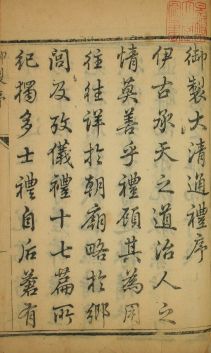 御製大清通禮序
伊古承天之道治人之
情莫善乎禮顧其為用
往往詳於朝廟略於鄉
閭及攷儀禮十七篇所
紀獨多士禮自后蒼有